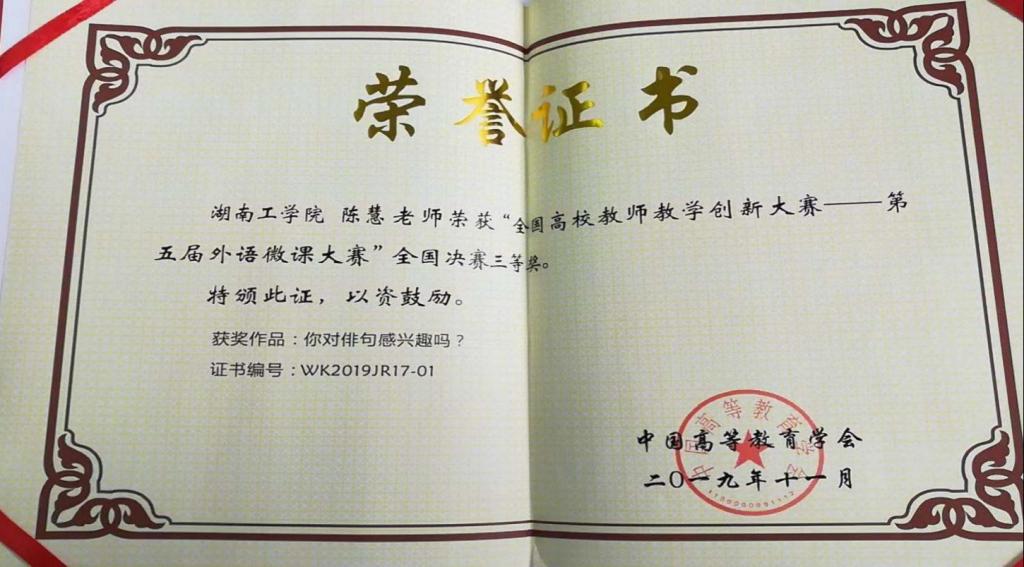 荣誉证书
湖南工学院 陈慧老师荣获“全国高校教师教学创新大赛——第
五届外语微课大赛”全国决赛三等奖。
特颁此证，以资鼓励。
获奖作品：你对俳句感兴趣吗？
证书编号：WK2019JR17-01
中国高等教育学会
中国高等教育学会
二〇一九年十一月